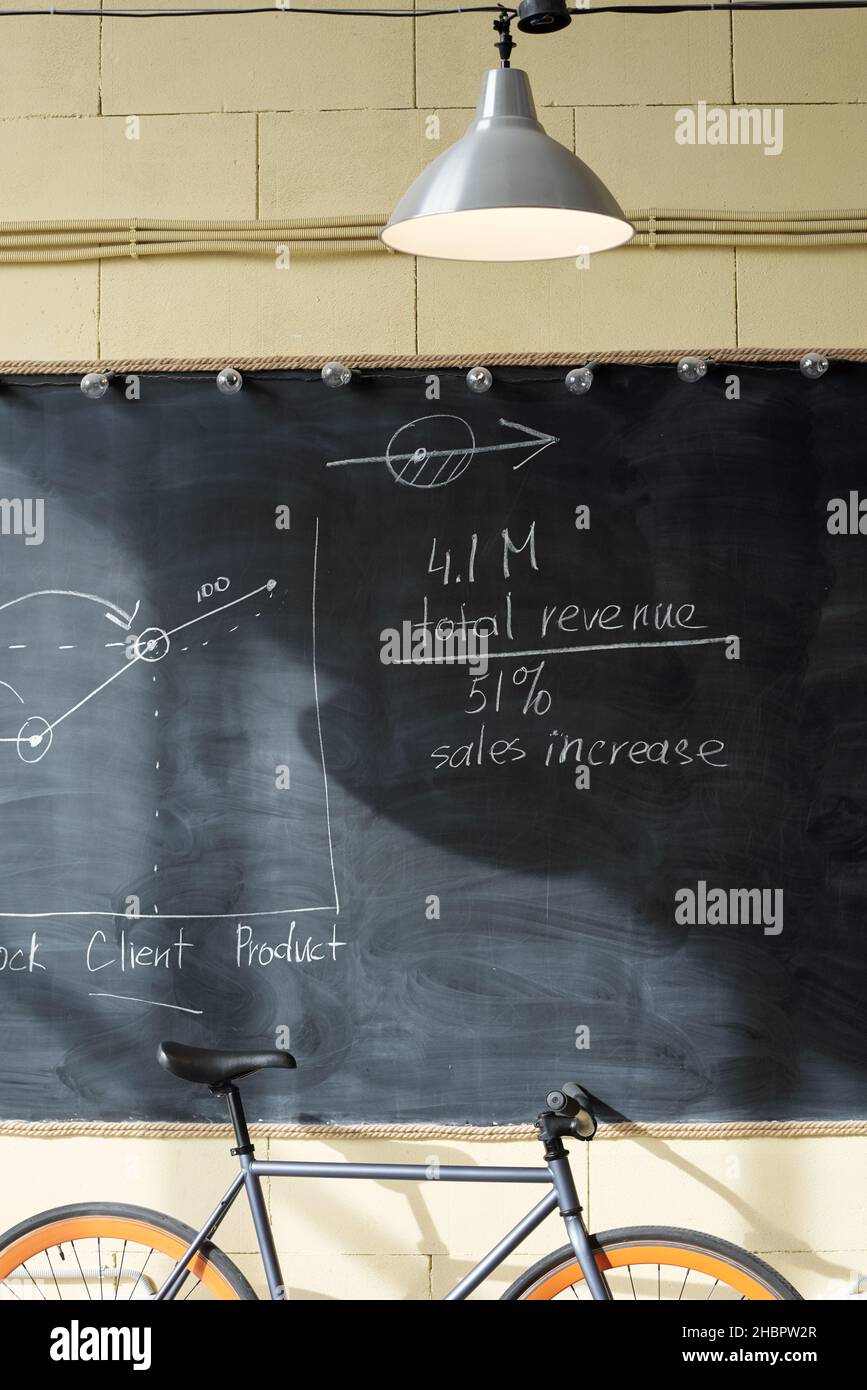 4.1 M
total revenue
51%
sales increase
100
ock Client Product
alamy
Image ID: 2HBPW2R
www.alamy.com